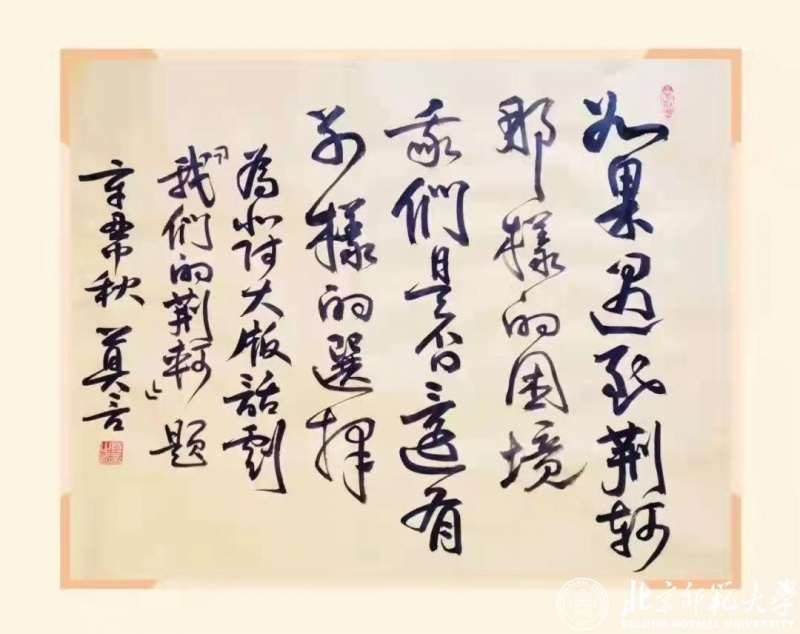 如果遇到荆軻
那樣的困境
我們是否還有
别樣的選擇
為北師大版話劇
「我們的荆軻」題
辛丑中秋 莫言
北京師範大學
BEIJING NORMAL UNIVERSITY